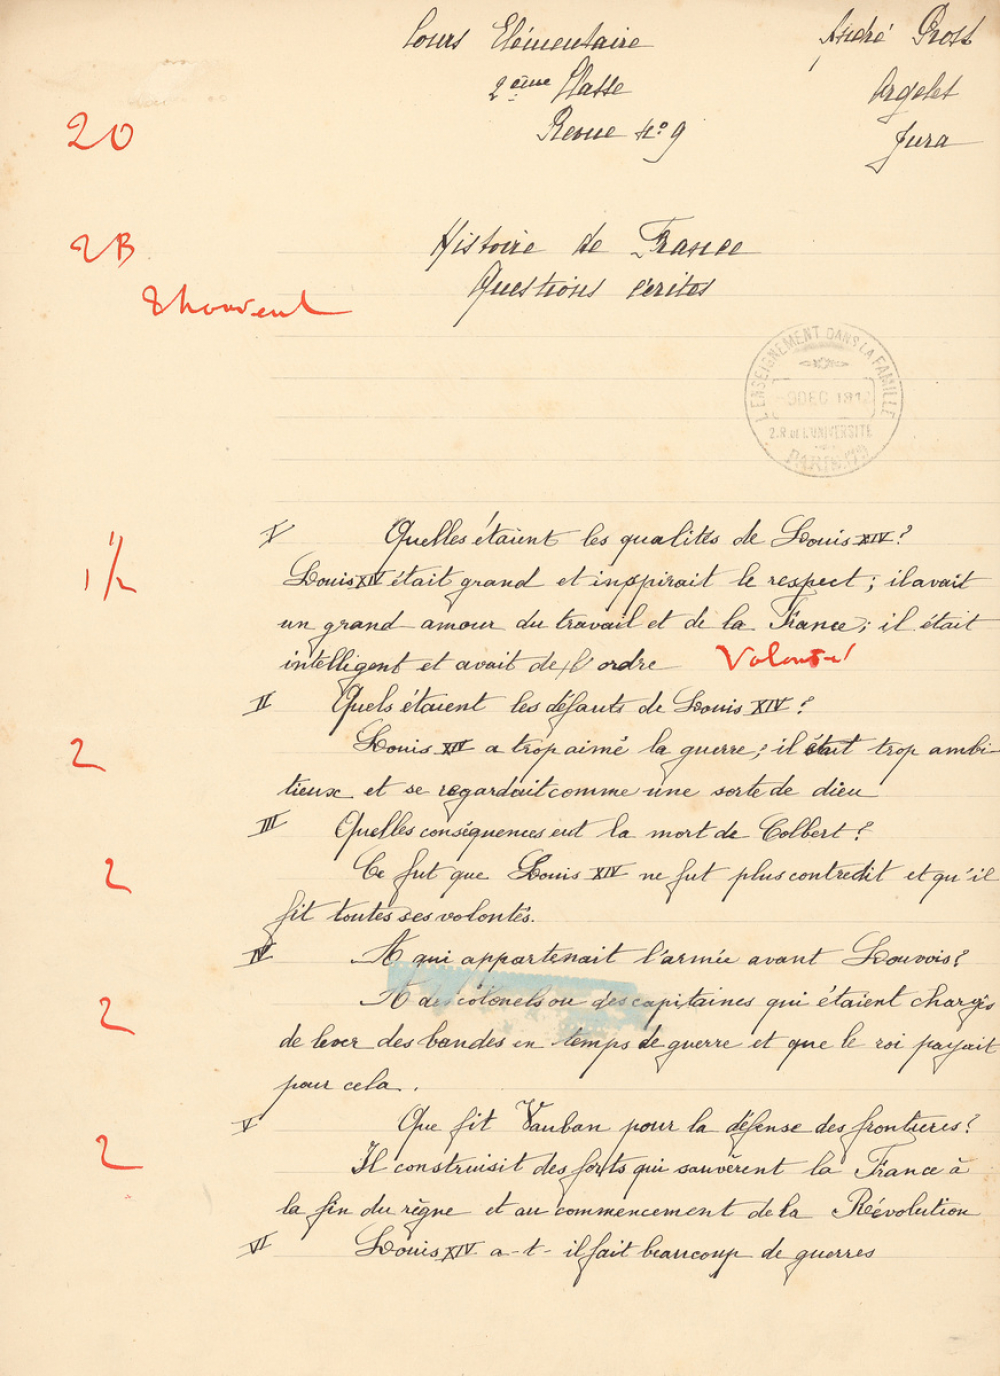 Cours Elémentaire
André Prost
2ème Classe
Argelet
Revue No 9
Jura
20
2B
Histoire de France
Questions écrites
L'ENSEIGNEMENT DANS LA FAMILLE
9 DEC 191
2.R de L'UNIVERSITÉ
PARIS
I Quelles étaient les qualités de Louis XIV?
1 1/2
Louis XIV était grand et inspirait le respect; il avait
un grand amour du travail et de la France; il était
intelligent et avait de l'ordre Volonté
II Quels étaient les défauts de Louis XIV?
2
Louis XIV a trop aimé la guerre; il était trop ambi-
tieux et se regardait comme une sorte de dieu
III Quelles conséquences eut la mort de Colbert?
2
Ce fut que Louis XIV ne fut plus contredit et qu'il
fit toutes ses volontés.
IV A qui appartenait l'armée avant Louvois?
2
A des colonels ou des capitaines qui étaient chargés
de lever des bandes en temps de guerre et que le roi payait
pour cela.
V Que fit Vauban pour la défense des frontières?
2
Il construisit des forts qui sauvèrent la France à
la fin du règne et au commencement de la Révolution
VI Louis XIV a-t-il fait beaucoup de guerres